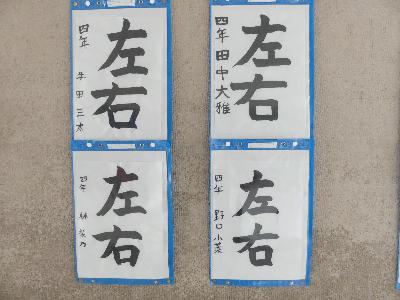 左右
四年 田三太
左右
四年 田中大雅
左右
四年 林
左右
四年 野口小菜